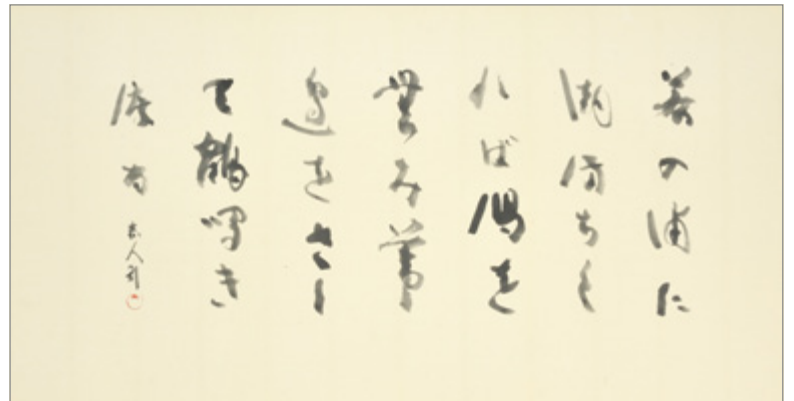 若の浦に
潮満ちく
れば潟を
無み葦
辺をさし
て鶴鳴き
渡る